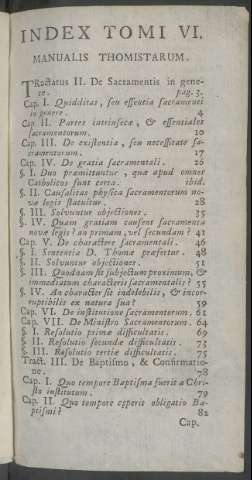 INDEX TOMI VI.
MANUALIS THOMISTARUM.
TRactatus II. De Sacramentis in gene-
re. pag. 3.
Cap. I. Quidditas, seu essentia sacramenti
in genere. 4
Cap. II. Partes intrinsecæ, & essentiales
sacramentorum. 10
Cap. III. De existentia, seu necessitate sa-
cramentorum. 17
Cap. IV. De gratia sacramentali. 26
§. I. Duo præmittuntur, quæ apud omnes
Catholicos sunt certa. ibid.
§. II. Causalitas physica sacramentorum no-
væ legis statuitur. 28
§. III. Solvuntur objectiones. 35
§. IV. Quam gratiam causent sacramenta
novæ legis? an primam, vel secundam? 41
Cap. V. De charactere sacramentali. 46
§. I. Sententia D. Thomæ præfertur. 48
§. II. Solvuntur objectiones. 51
§. III. Quodnam sit subjectum proximum, &
immediatum characteris sacramentalis? 55
§. IV. An character sit indelebilis, & incor-
ruptibilis ex natura sua? 59
Cap. VI. De institutione sacramentorum. 61
Cap. VII. De Ministro Sacramentorum. 64
§. I. Resolutio primæ difficultatis. 69
§. II. Resolutio secundæ difficultatis. 73
§. III. Resolutio tertiæ difficultatis. 75
Tract. III. De Baptismo, & Confirmatio-
ne. 78
Cap. I. Quo tempore Baptisma fuerit a Chri-
sto institutum. 79
Cap. II. Quo tempore cœperit obligatio Ba-
ptismi? 82
Cap.